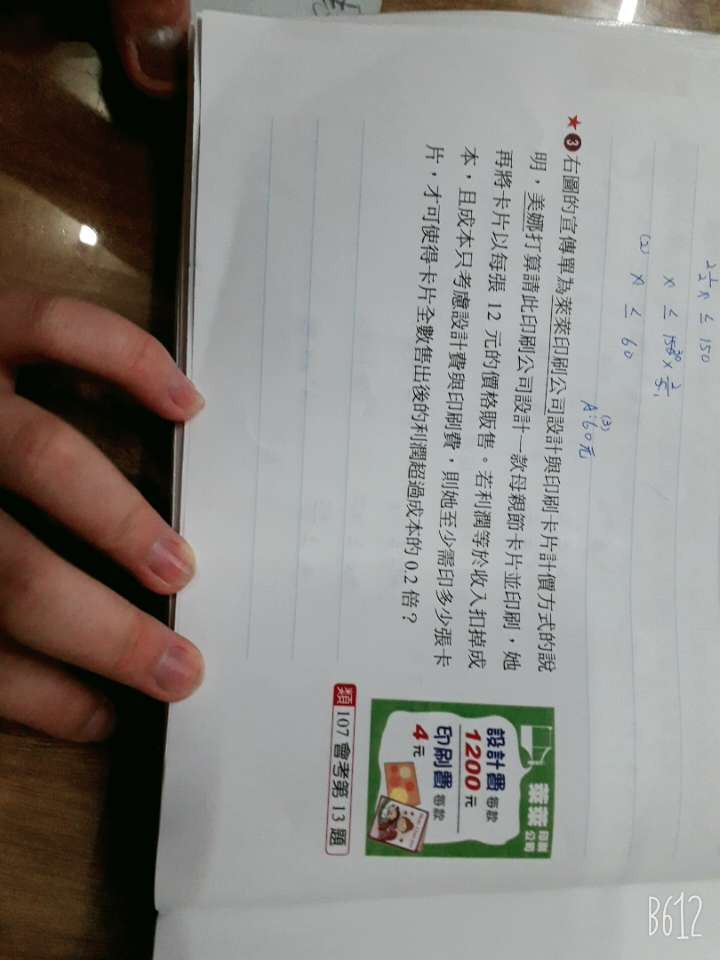 2 1/2 x ≤ 150
x ≤ 150 30 × 2/5 1
(2) x ≤ 60
(3)
A:60元
★❸右圖的宣傳單為萊萊印刷公司設計與印刷卡片計價方式的說
明，美娜打算請此印刷公司設計一款母親節卡片並印刷，她
再將卡片以每張 12 元的價格販售。若利潤等於收入扣掉成
本，且成本只考慮設計費與印刷費，則她至少需印多少張卡
片，才可使得卡片全數售出後的利潤超過成本的 0.2 倍？
萊萊 印刷公司
設計費 每款
1200 元
印刷費 每款
4 元
類 107 會考第 13 題
B612